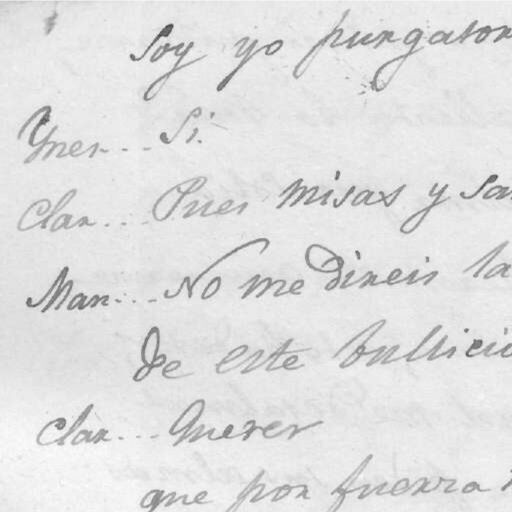 Soy yo purgator
Ynes... Si.
Clar... Pues misas y sa
Mar... No me direis la
de este bullicio
Clar... Querer
que por fuerza